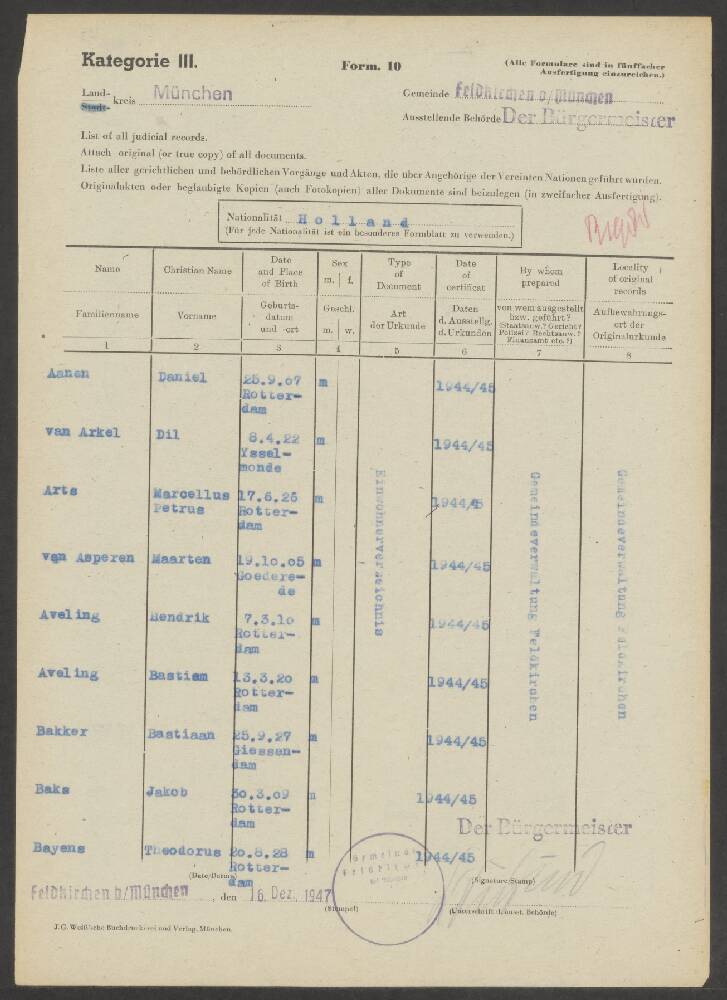 Kategorie III.
Form. 10
(Alle Formulare sind in fünffacher
Ausfertigung einzureichen.)
Land-
Stadt- kreis München
Gemeinde Feldkirchen b/München
Ausstellende Behörde Der Bürgermeister
List of all judicial records.
Attach original (or true copy) of all documents.
Liste aller gerichtlichen und behördlichen Vorgänge und Akten, die über Angehörige der Vereinten Nationen geführt wurden.
Originalakten oder beglaubigte Kopien (auch Fotokopien) aller Dokumente sind beizulegen (in zweifacher Ausfertigung).
Nationalität Holland
(Für jede Nationalität ist ein besonderes Formblatt zu verwenden.)
Name Christian Name Date and Place of Birth Sex m. f. Type of Document Date of certificat By whom prepared Locality of original records
Familienname Vorname Geburts-datum und -ort Geschl. m. w. Art der Urkunde Daten d. Ausstellg. d. Urkunden von wem ausgestellt bzw. geführt? (Staatsanw.? Gericht? Polizei? Rechtsanw.? Finanzamt etc.?) Aufbewahrungs-ort der Originalurkunde
1 2 3 4 5 6 7 8
Aanen Daniel 25.9.07 m 1944/45
Rotter-
dam
van Arkel Dil 8.4.22 m 1944/45
Yssel-
monde
Arts Marcellus 17.6.25 m 1944/45
Petrus Rotter-
dam
van Asperen Maarten 19.10.05 m 1944/45
Goedere-
de
Aveling Hendrik 7.3.10 m 1944/45
Rotter-
dam
Aveling Bastiam 13.3.20 m 1944/45
Rotter-
dam
Bakker Bastiaan 25.9.27 m 1944/45
Giessen-
dam
Baks Jakob 30.3.09 m 1944/45
Rotter-
dam
Bayens Theodorus 20.8.28 m 1944/45
Rotter-
dam
Einwohnerverzeichnis
Gemeindeverwaltung Feldkirchen
Gemeindeverwaltung Feldkirchen
Der Bürgermeister
(Date/Datum)
Feldkirchen b/München, den 16. Dez. 1947
(Stempel)
Gemeinde
(Signature/Stamp)
(Unterschrift d. ausst. Behörde)
J. G. Weiß'sche Buchdruckerei und Verlag, München.